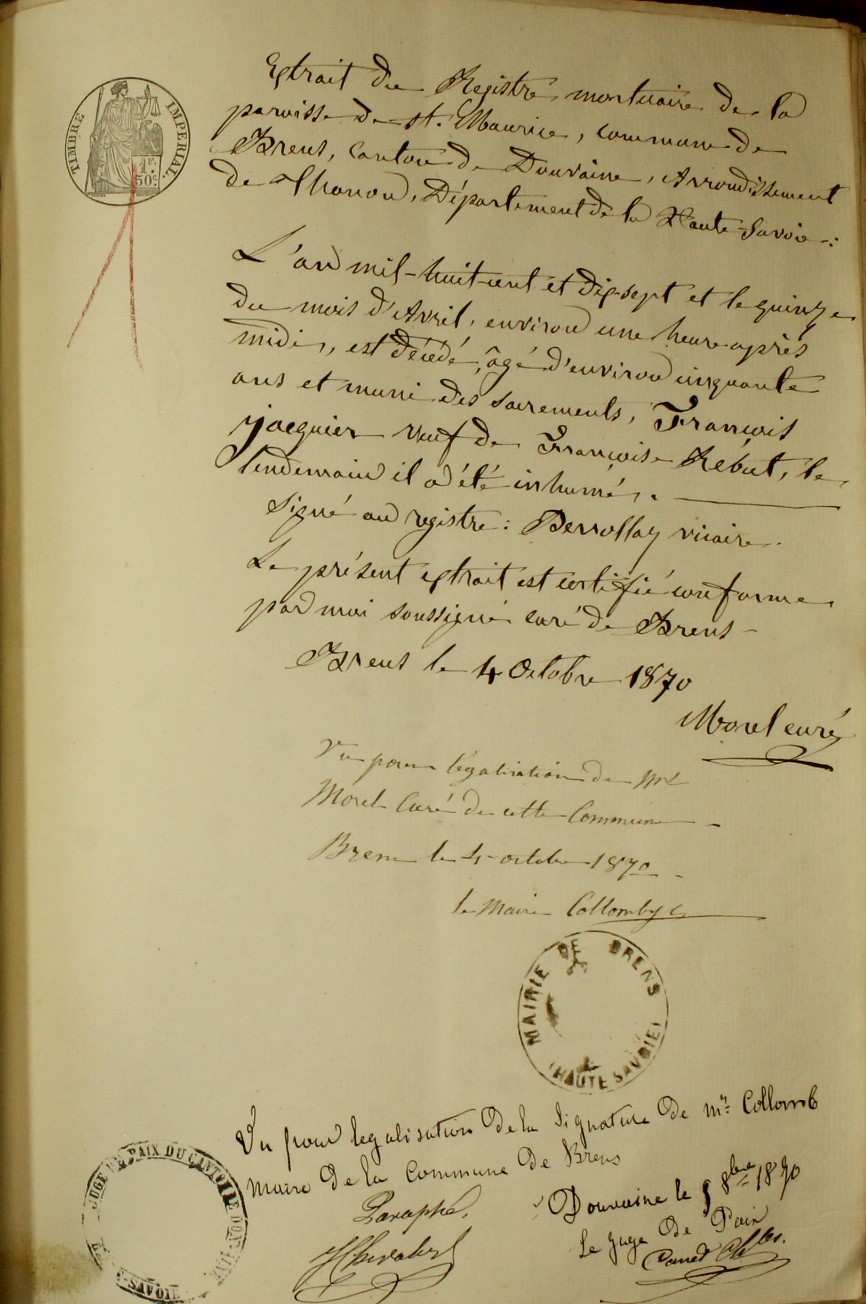 TIMBRE IMPERIAL.
1F.
50c
Extrait du Registre mortuaire de la
paroisse de st. Maurice, commune de
Brens, Canton de Douvaine, Arrondissement
de Thonon, Département de la Haute-Savoie.:
L'an mil-huit-cent et dix-sept et le quinze
du mois d'Avril, environ une heure après
midi, est décédé, âgé d'environ cinquante
ans et muni des sacrements, François
Jacquier veuf de Françoise Rébut, le
lendemain il a été inhumé.
Signé au registre: Perrollaz vicaire.
Le présent extrait est certifié conforme
par moi soussigné curé de Brens-
Brens le 4 Octobre 1870
Morel curé
Vu pour légalisation de Mr
Morel Curé de cette Commune
Brens le 4 octobre 1870
le Maire Collomb
MAIRIE DE BRENS
(HAUTE SAVOIE)
Vu pour legalisation de la signature de mr. Collomb
Maire de la Commune de Brens
Douvaine le 8bre 1870
Le Juge de Paix
Paraphé.
JUGE DE PAIX DU CANTON DE DOUVAINE
SAVOIE